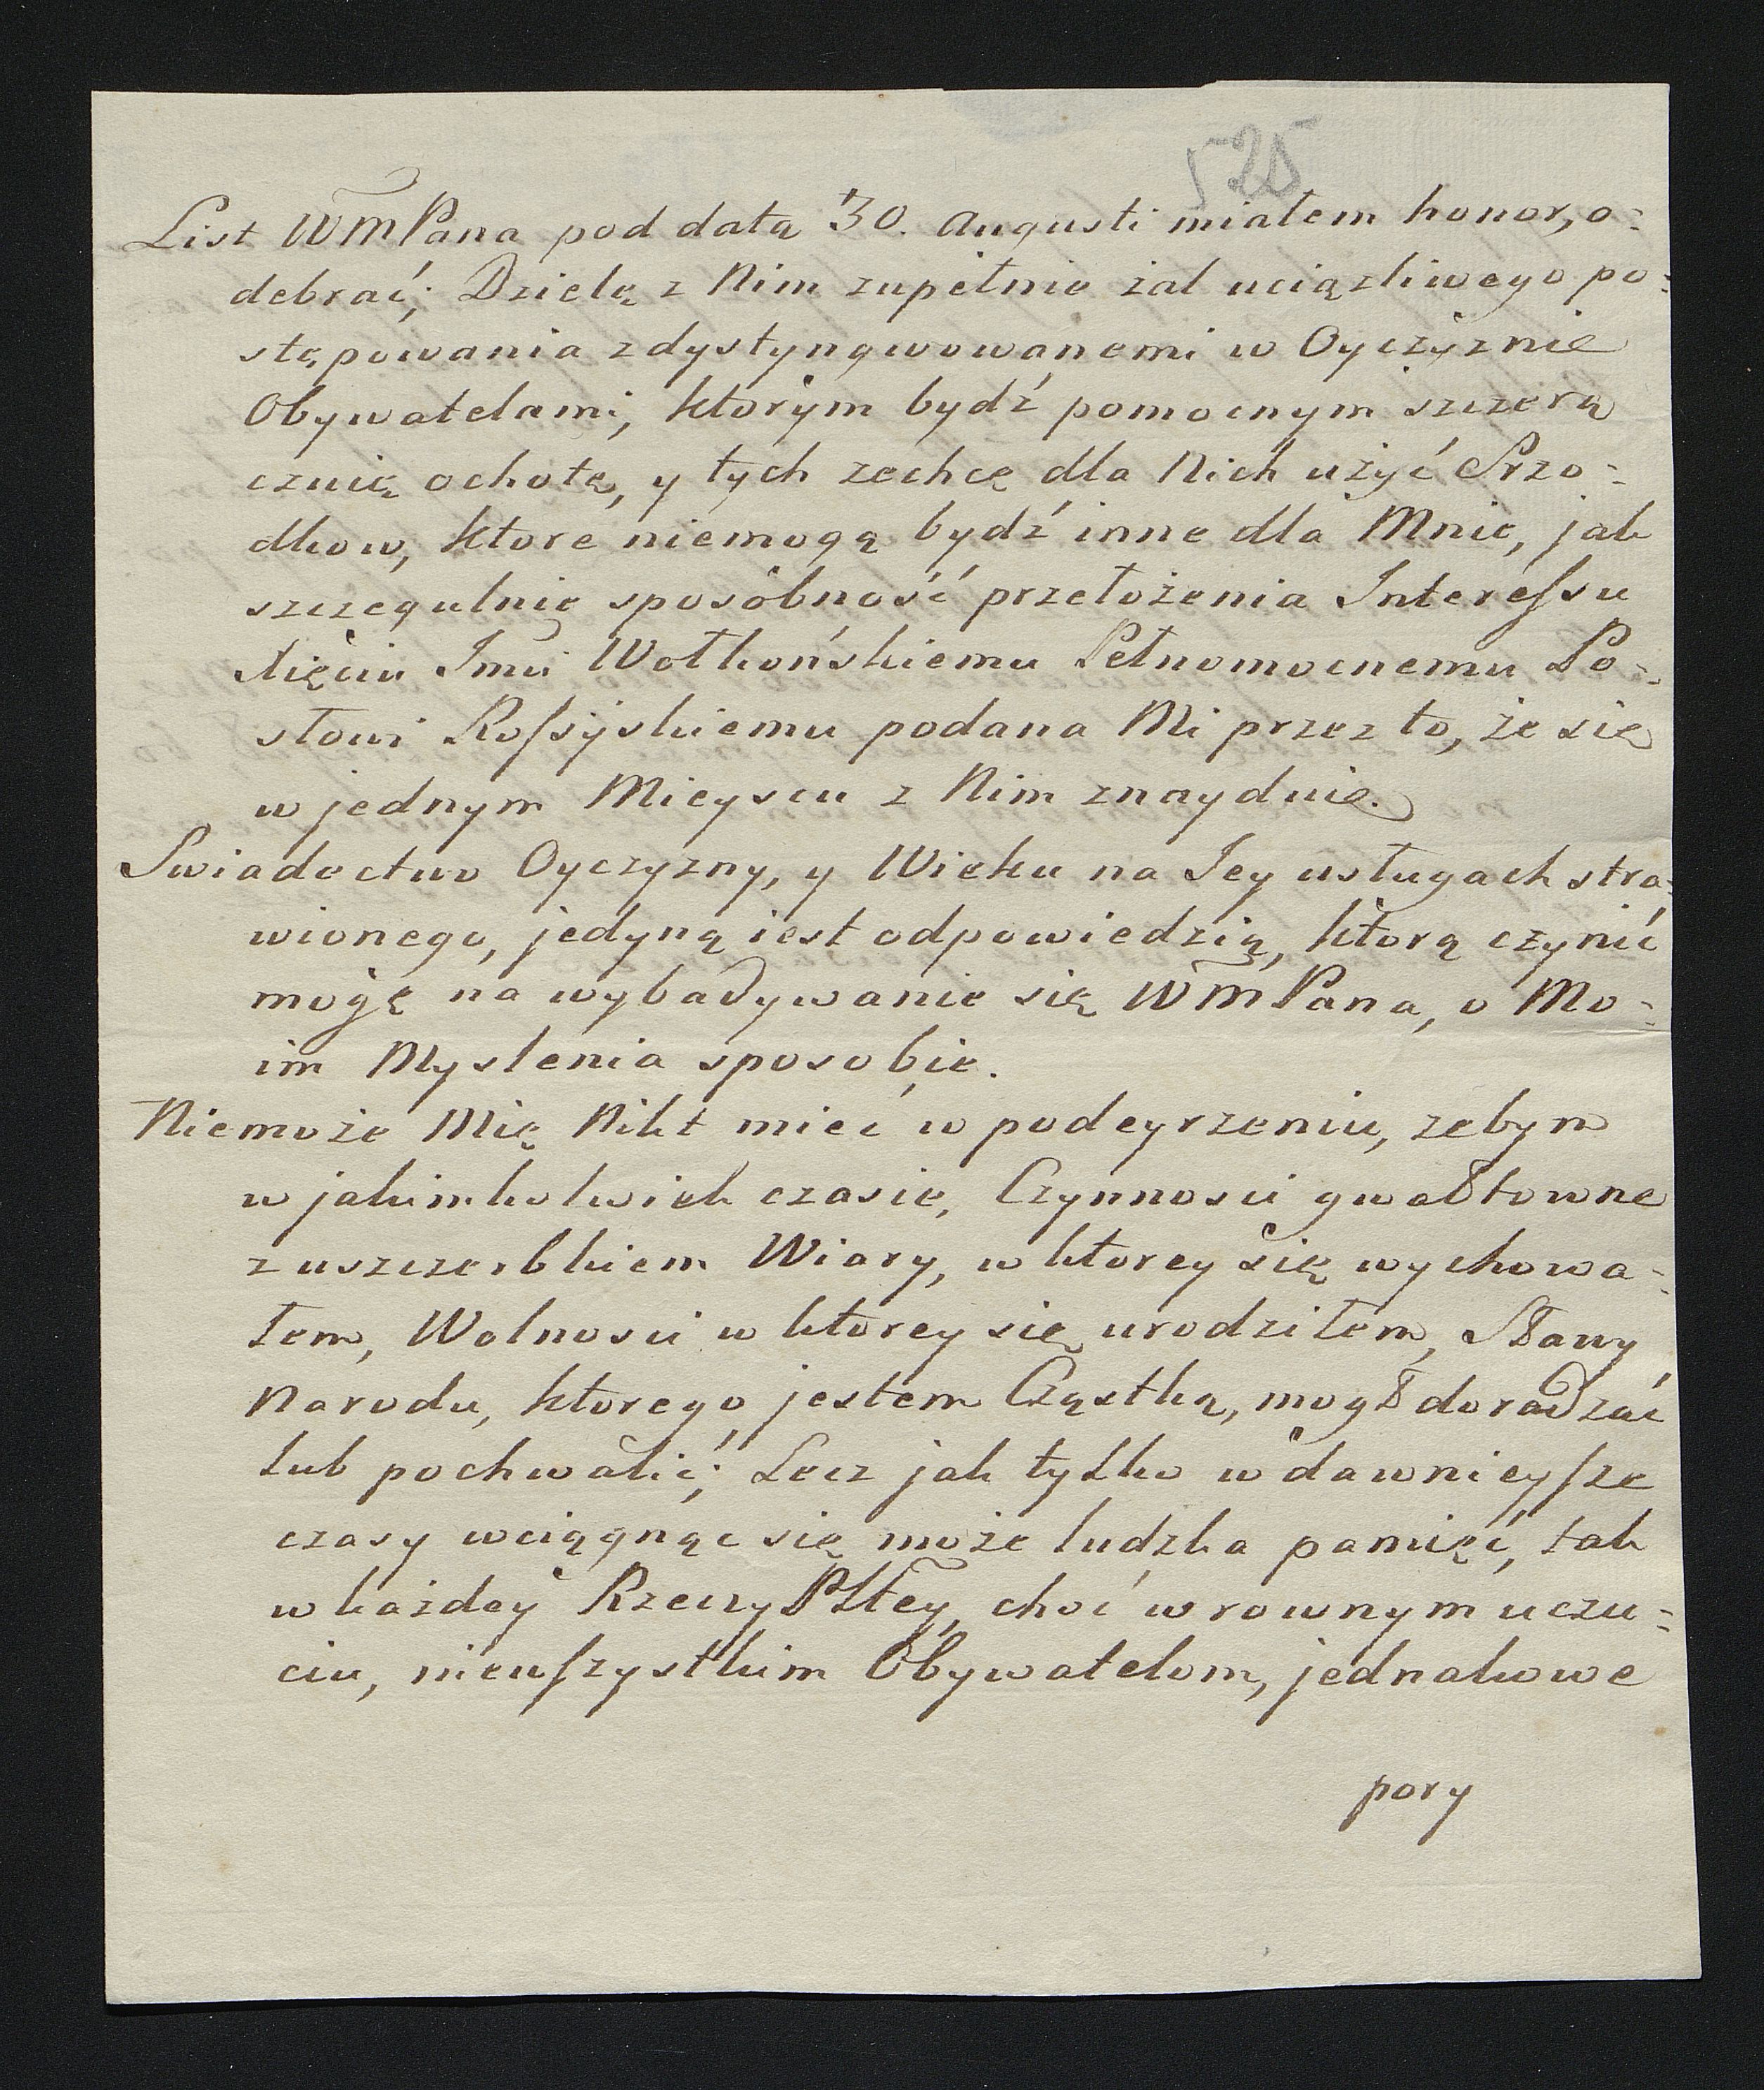 525
List WMPana pod datą 30. Augusti miałem honor, o=
debrać; Dzielę z Nim zupełnie żal uciązliwego po=
stępowania zdystyngwowanemi w Oyczyznie
Obywatelami, ktorym bydź pomocnym szczerą
cznię ochotę, y tych zechcę dla Nich użyć Srzo=
dkow, ktore niemogą bydź inne dla Mnie, jak
szczegulnie sposobność przełożenia Interessu
Xięciu Jmći Wołkońskiemu Pełnomocnemu Po=
słowi Rossyiskiemu podana Mi przez to, że się
w jednym Mieyscu z Nim znayduie.
Swiadectwo Oyczyzny, y Wieku na Jey usługach stra=
wionego, jedyną iest odpowiedzią, ktorą czynić
mogę na wybadywanie się WMPana, o Mo=
im Myslenia sposobie.
Niemoże Mię Nikt mieć w podeyrzeniu, zebym
w jakimkolwiek czasie, Czynnosci gwałtowne
z uszczerbkiem Wiary, w ktorey się wychowa=
łem, Wolnosci w ktorey się urodziłem, Sławy
Narodu, ktorego jestem Cząstką, mogł doradzać
lub pochwalić; Lecz jak tylko w dawnieysze
czasy wciągnąc się może ludzka pamięć, tak
w każdey RzeczyPltey, choć w rownym uczu=
ciu, niewszystkim Obywatelom, jednakowe
pory